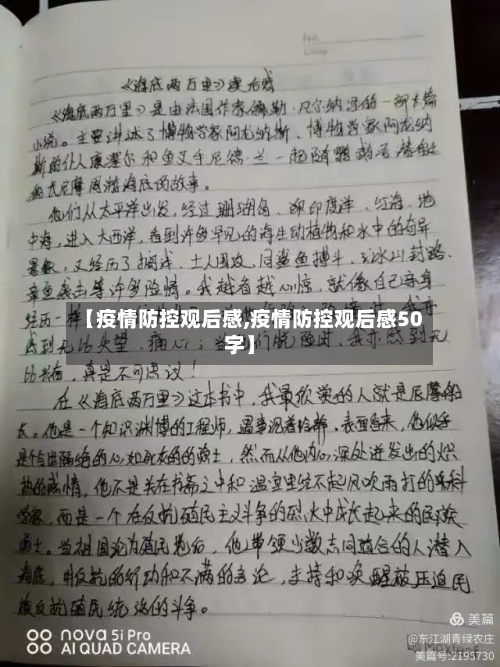 《海底两万里》读后感
《海底两万里》是由法国作家儒勒·凡尔纳写的一部长篇
小说。主要讲述了博物学家阿龙纳斯、博物学家阿龙纳
斯的仆人康塞尔和鱼叉手尼德·兰一起随鹦鹉螺潜艇
船长尼摩周游海底的故事。
他们从太平洋出发,经过珊瑚岛、印度洋、红海、地
中海,进入大西洋,看到许多罕见的海生动植物和水中的奇异
景象,又经历了搁浅、土人围攻、同鲨鱼搏斗、冰山封路、
章鱼袭击等许多险情。我越看越心惊,就像自己亲身
经历一样
【疫情防控观后感,疫情防控观后感50
字】
感到无比失望、痛心;当他们脱险时,我亦感到无
比兴奋,真是不可思议!
在《海底两万里》这本书中,我最欣赏的人就是尼摩船
长。他是一个知识渊博的工程师,遇事沉着冷静,表面看来,他似乎
是个与世隔绝的、心如死灰的隐士,然而从他内心深处迸发出的炽
热的感情,他不是关在书斋之中和温室里经不起风吹雨打的
而是一个在反抗殖民主义斗争的烈火中成长起来的民族
勇士。当祖国沦为殖民地后,他带领少数志同道合的人潜入
海底,用反抗的行动和不满的言论,支持和唤醒被压迫民
族反抗殖民统治的斗争。
nova 5i Pro
AI QUAD CAMERA
美篇
@东江湖青绿农庄
美篇号:2195730